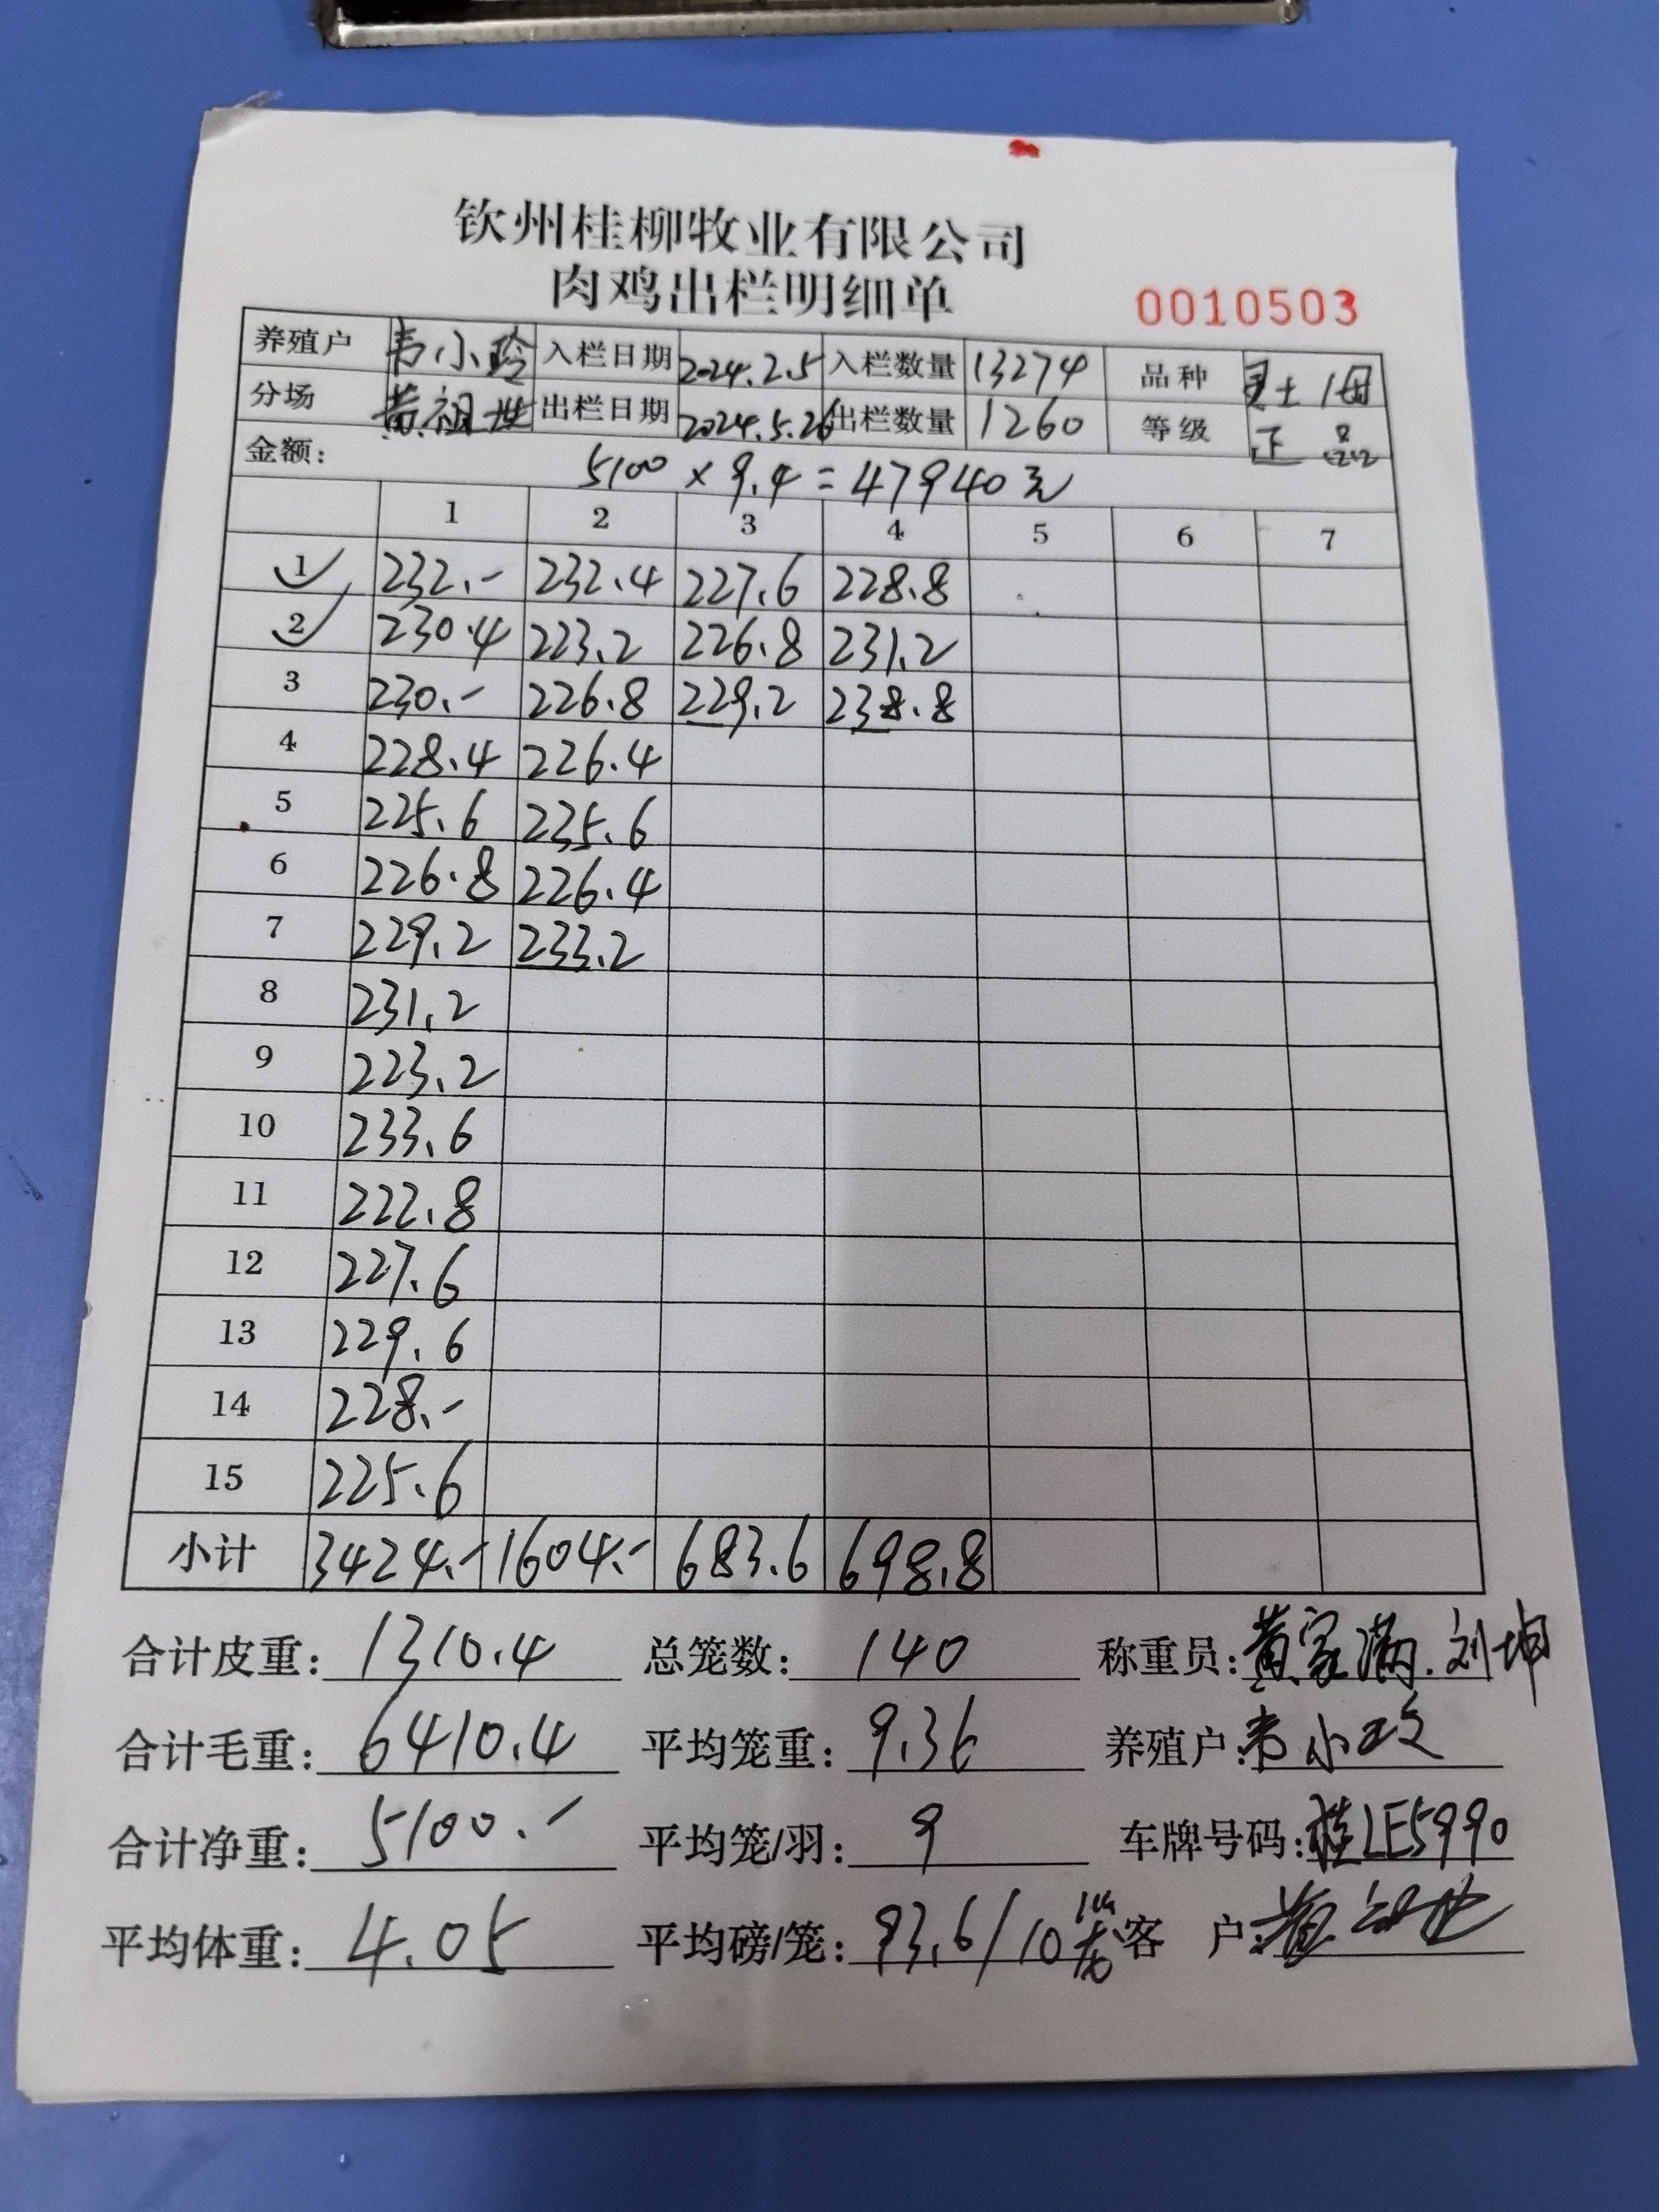 钦州桂柳牧业有限公司
肉鸡出栏明细单
0010503
养殖户 韦小玲 入栏日期 2024.2.5 入栏数量 13274 品种 土1母
分场 黄祖世 出栏日期 2024.5.26 出栏数量 1260 等级 正品
金额: 5100×9.4=47940元
1 2 3 4 5 6 7
1 232.- 232.4 227.6 228.8
2 230.4 223.2 226.8 231.2
3 230.- 226.8 229.2 238.8
4 228.4 226.4
5 225.6 235.6
6 226.8 226.4
7 229.2 233.2
8 231.2
9 223.2
10 233.6
11 222.8
12 227.6
13 229.6
14 228.-
15 225.6
小计 3424.- 1604.- 683.6 698.8
合计皮重: 1310.4 总笼数: 140 称重员: 黄家满.刘坤
合计毛重: 6410.4 平均笼重: 9.36 养殖户: 韦小玲
合计净重: 5100.- 平均笼/羽: 9 车牌号码: 桂LE5990
平均体重: 4.05 平均磅/笼: 93.6/10 客 户: